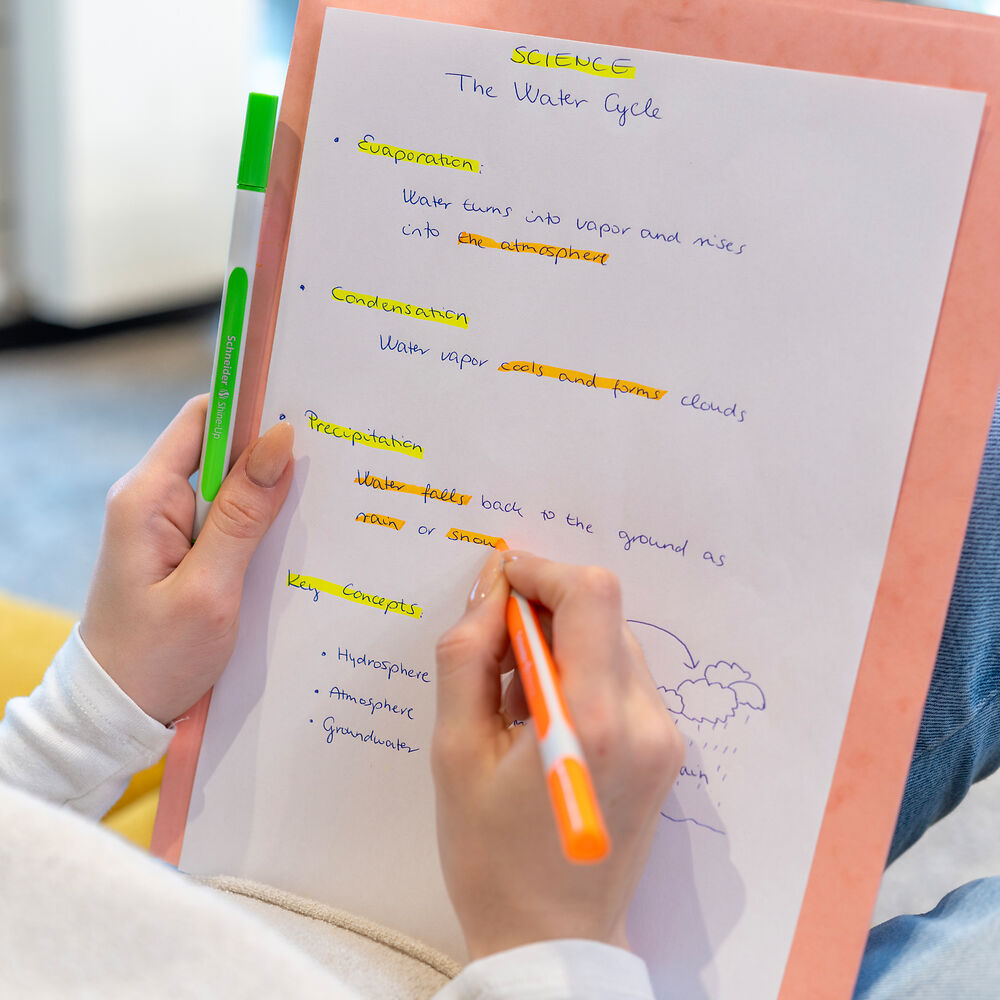 SCIENCE
The Water Cycle
• Evaporation:
Water turns into vapor and rises
into the atmosphere
• Condensation
Water vapor cools and forms clouds
• Precipitation
Water falls back to the ground as
rain or snow
Key Concepts:
• Hydrosphere
• Atmosphere
• Groundwater
Schneider Shine-Up